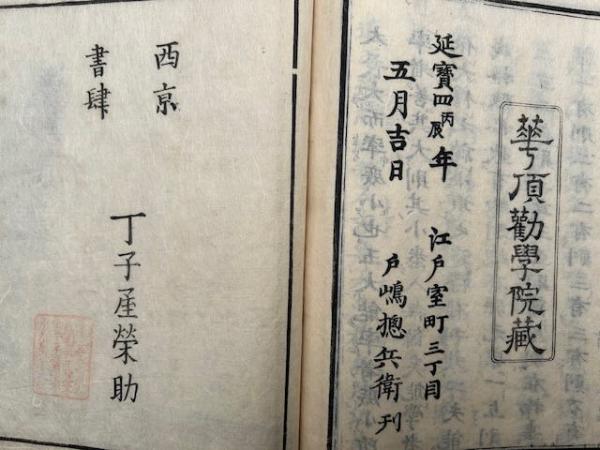 華頂勸學院藏
延寳四丙辰年
五月吉日
江戸室町三丁目
戸嶋摠兵衛刊
西京
書肆
丁子屋榮助